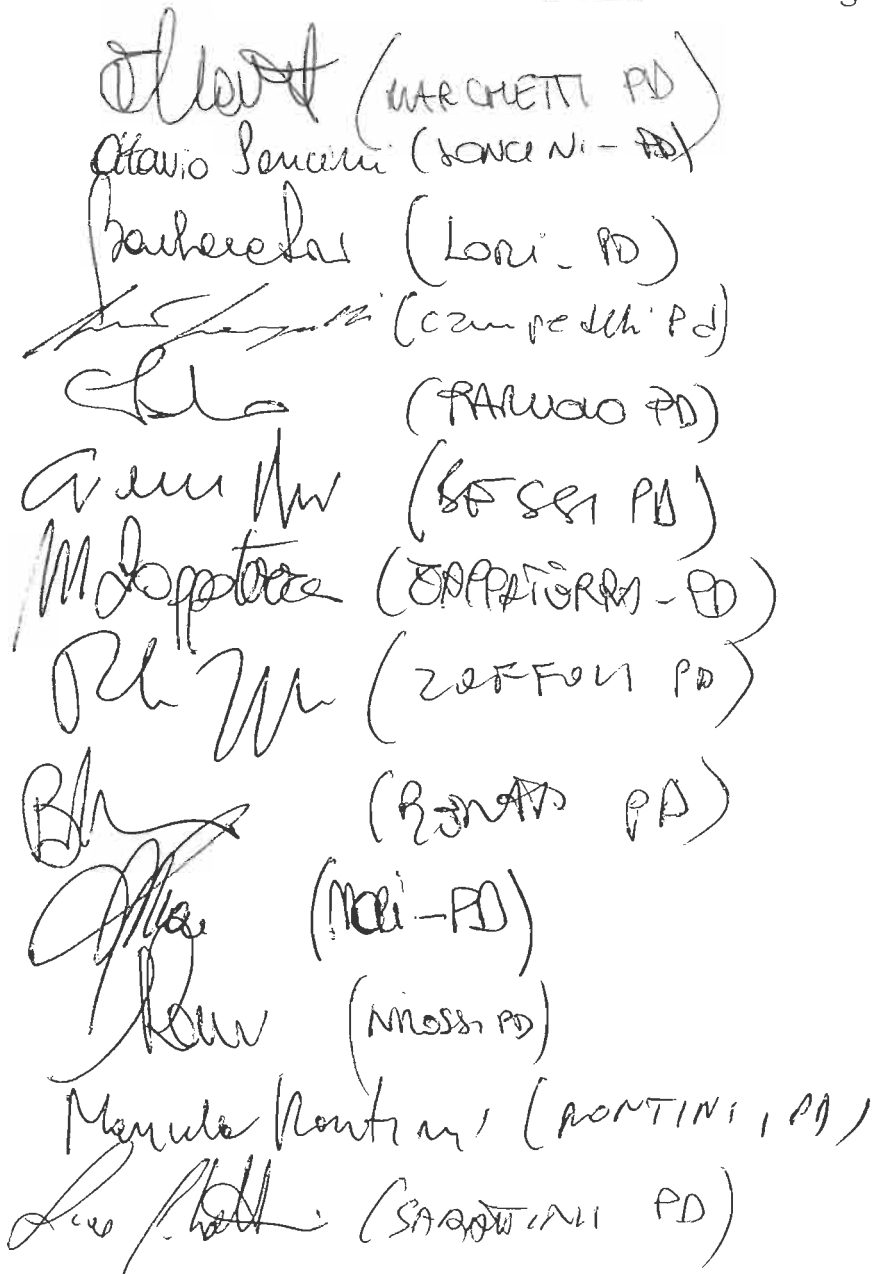 (MARCHETTI PD)
Ottavio Soncini (SONCINI - PD)
Barbara Lori (LORI - PD)
(Campedelli Pd)
(PARUOLO PD)
Gianni Bessi (BESSI PD)
M Zappaterra (ZAPPATERRA - PD)
(ZOFFOLI PD)
(PD)
(MORI - PD)
Rossi (N ROSSI PD)
Manuela Rontini (RONTINI, PD)
Luca Sabattini (SABATTINI PD)